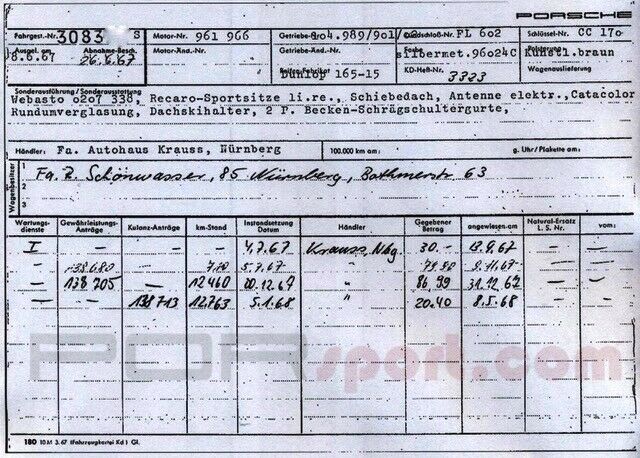 PORSCHE
Fahrgest.-Nr. 3083 S Motor-Nr. 961 966 Getriebe 104.989/901/02 FL 602 Schlüssel-Nr. CC 170
Ausgel. am 8.6.67 Abnahme-Besch. 26.6.67 Motor-Änd.-Nr. Getriebe-Änd.-Nr. Farbe silbermet.96024C Kunstl.braun
Dunlop 165-15 KD-Heft-Nr. 3323 Wagenauslieferung
Sonderausführung / Sonderausstattung
Webasto 0207 338, Recaro-Sportsitze li.re., Schiebedach, Antenne elektr.,Catacolor
Rundumverglasung, Dachskihalter, 2 P. Becken-Schrägschultergurte,
Händler: Fa. Autohaus Krauss, Nürnberg 100.000 km am: g. Uhr / Plakette am:
Wagenbesitzer
1 Fa. Z. Schönwasser, 85 Nürnberg, Bothmerstr. 63
2
3
Wartungsdienste Gewährleistungs-Anträge Kulanz-Anträge km-Stand Instandsetzung Datum Händler Gegebener Betrag angewiesen am Natural-Ersatz L. S. Nr. vom:
I — — — 4.7.67 Krauss Nbg. 30.- 13.9.67 — —
— 138680 — 5.7.67 " 79.90 9.11.67 — —
— 138705 — 12460 20.12.67 " 86,99 31.12.67 — —
— — 138713 12.763 5.1.68 " 20.40 8.5.68 — —
PORsport.com
180 10 M 3. 67 (Fahrzeugkartei Kd ) Gl.